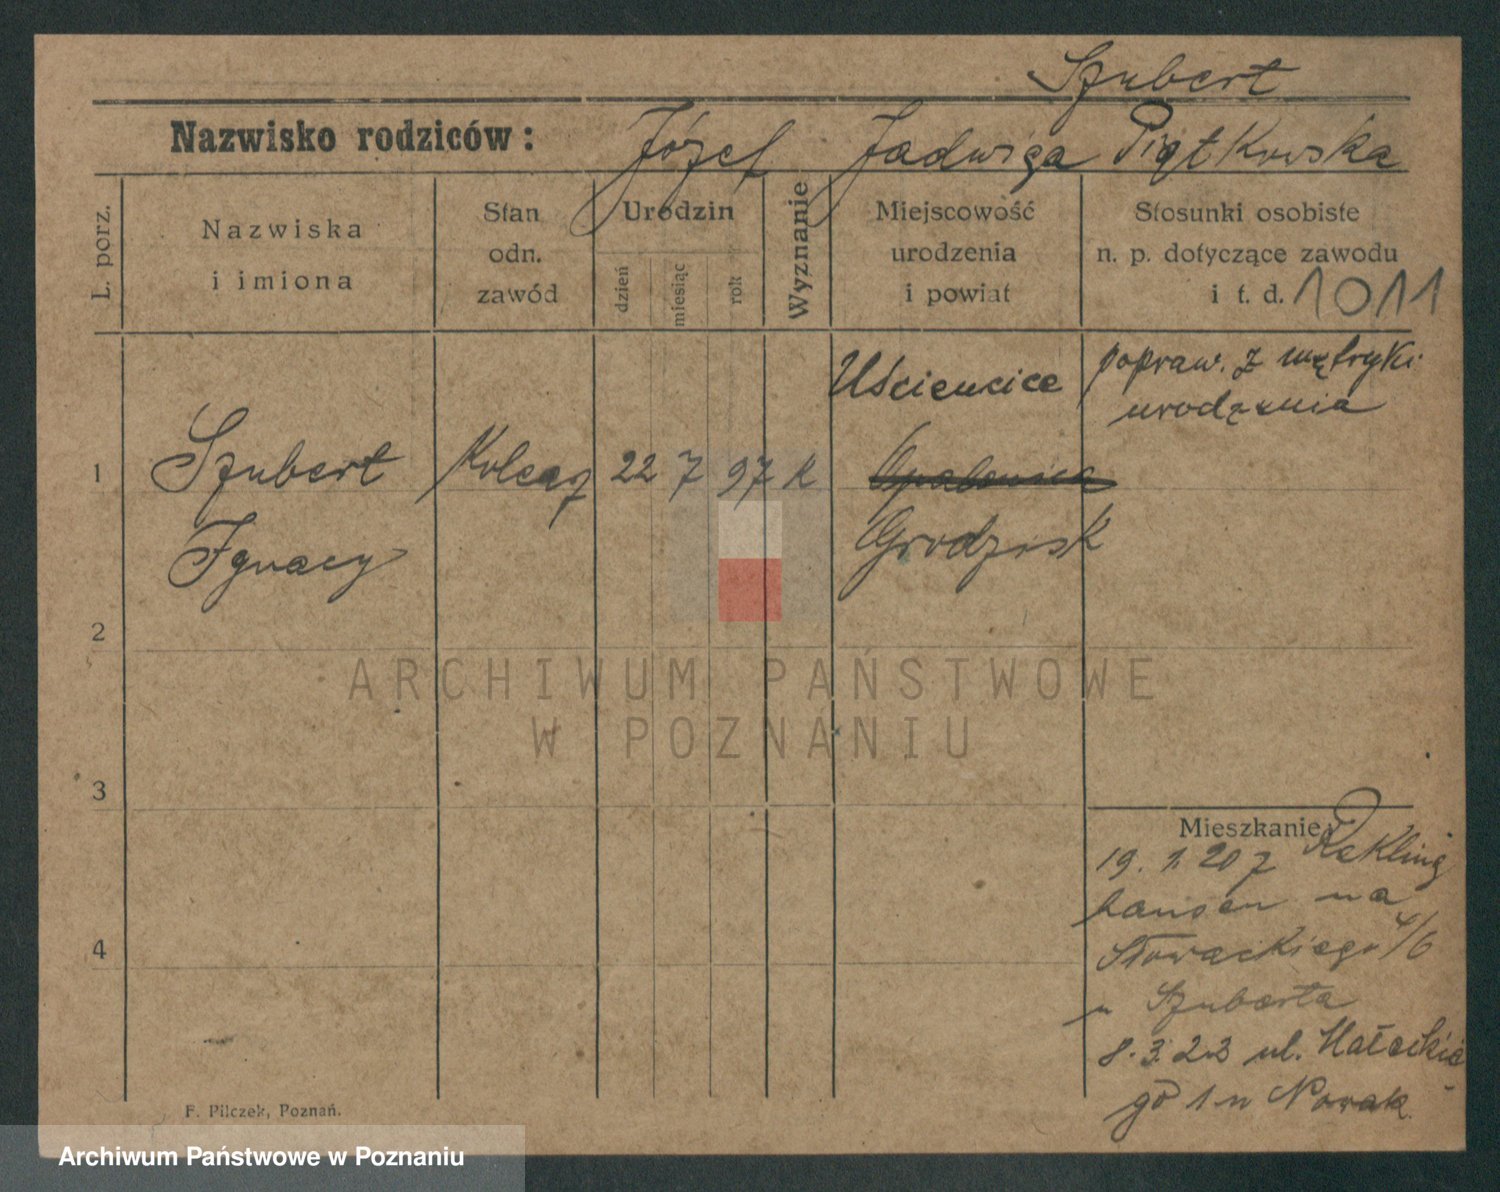 Szubert
Nazwisko rodziców: Józef Jadwiga Piątkowska
L. porz.
Nazwiska
i imiona
Stan
odn.
zawód
Urodzin
dzień
miesiąc
rok
Wyznanie
Miejscowość
urodzenia
i powiat
Stosunki osobiste
n. p. dotyczące zawodu
i t. d. 1011
Uścięcice
popraw. z metryki
urodzenia
1 Szubert Kolearz 22 7 97 K Opalenica
Ignacy Grodzisk
2
3
4
ARCHIWUM PAŃSTWOWE
W POZNANIU
Mieszkanie:
19. 1. 20 z Rekling
hausen na
Słowackiego 4/6
u Szuberta
8. 3. 23 ul. Małeckie
go 1 u Nowak.
F. Pilczek, Poznań.
Archiwum Państwowe w Poznaniu